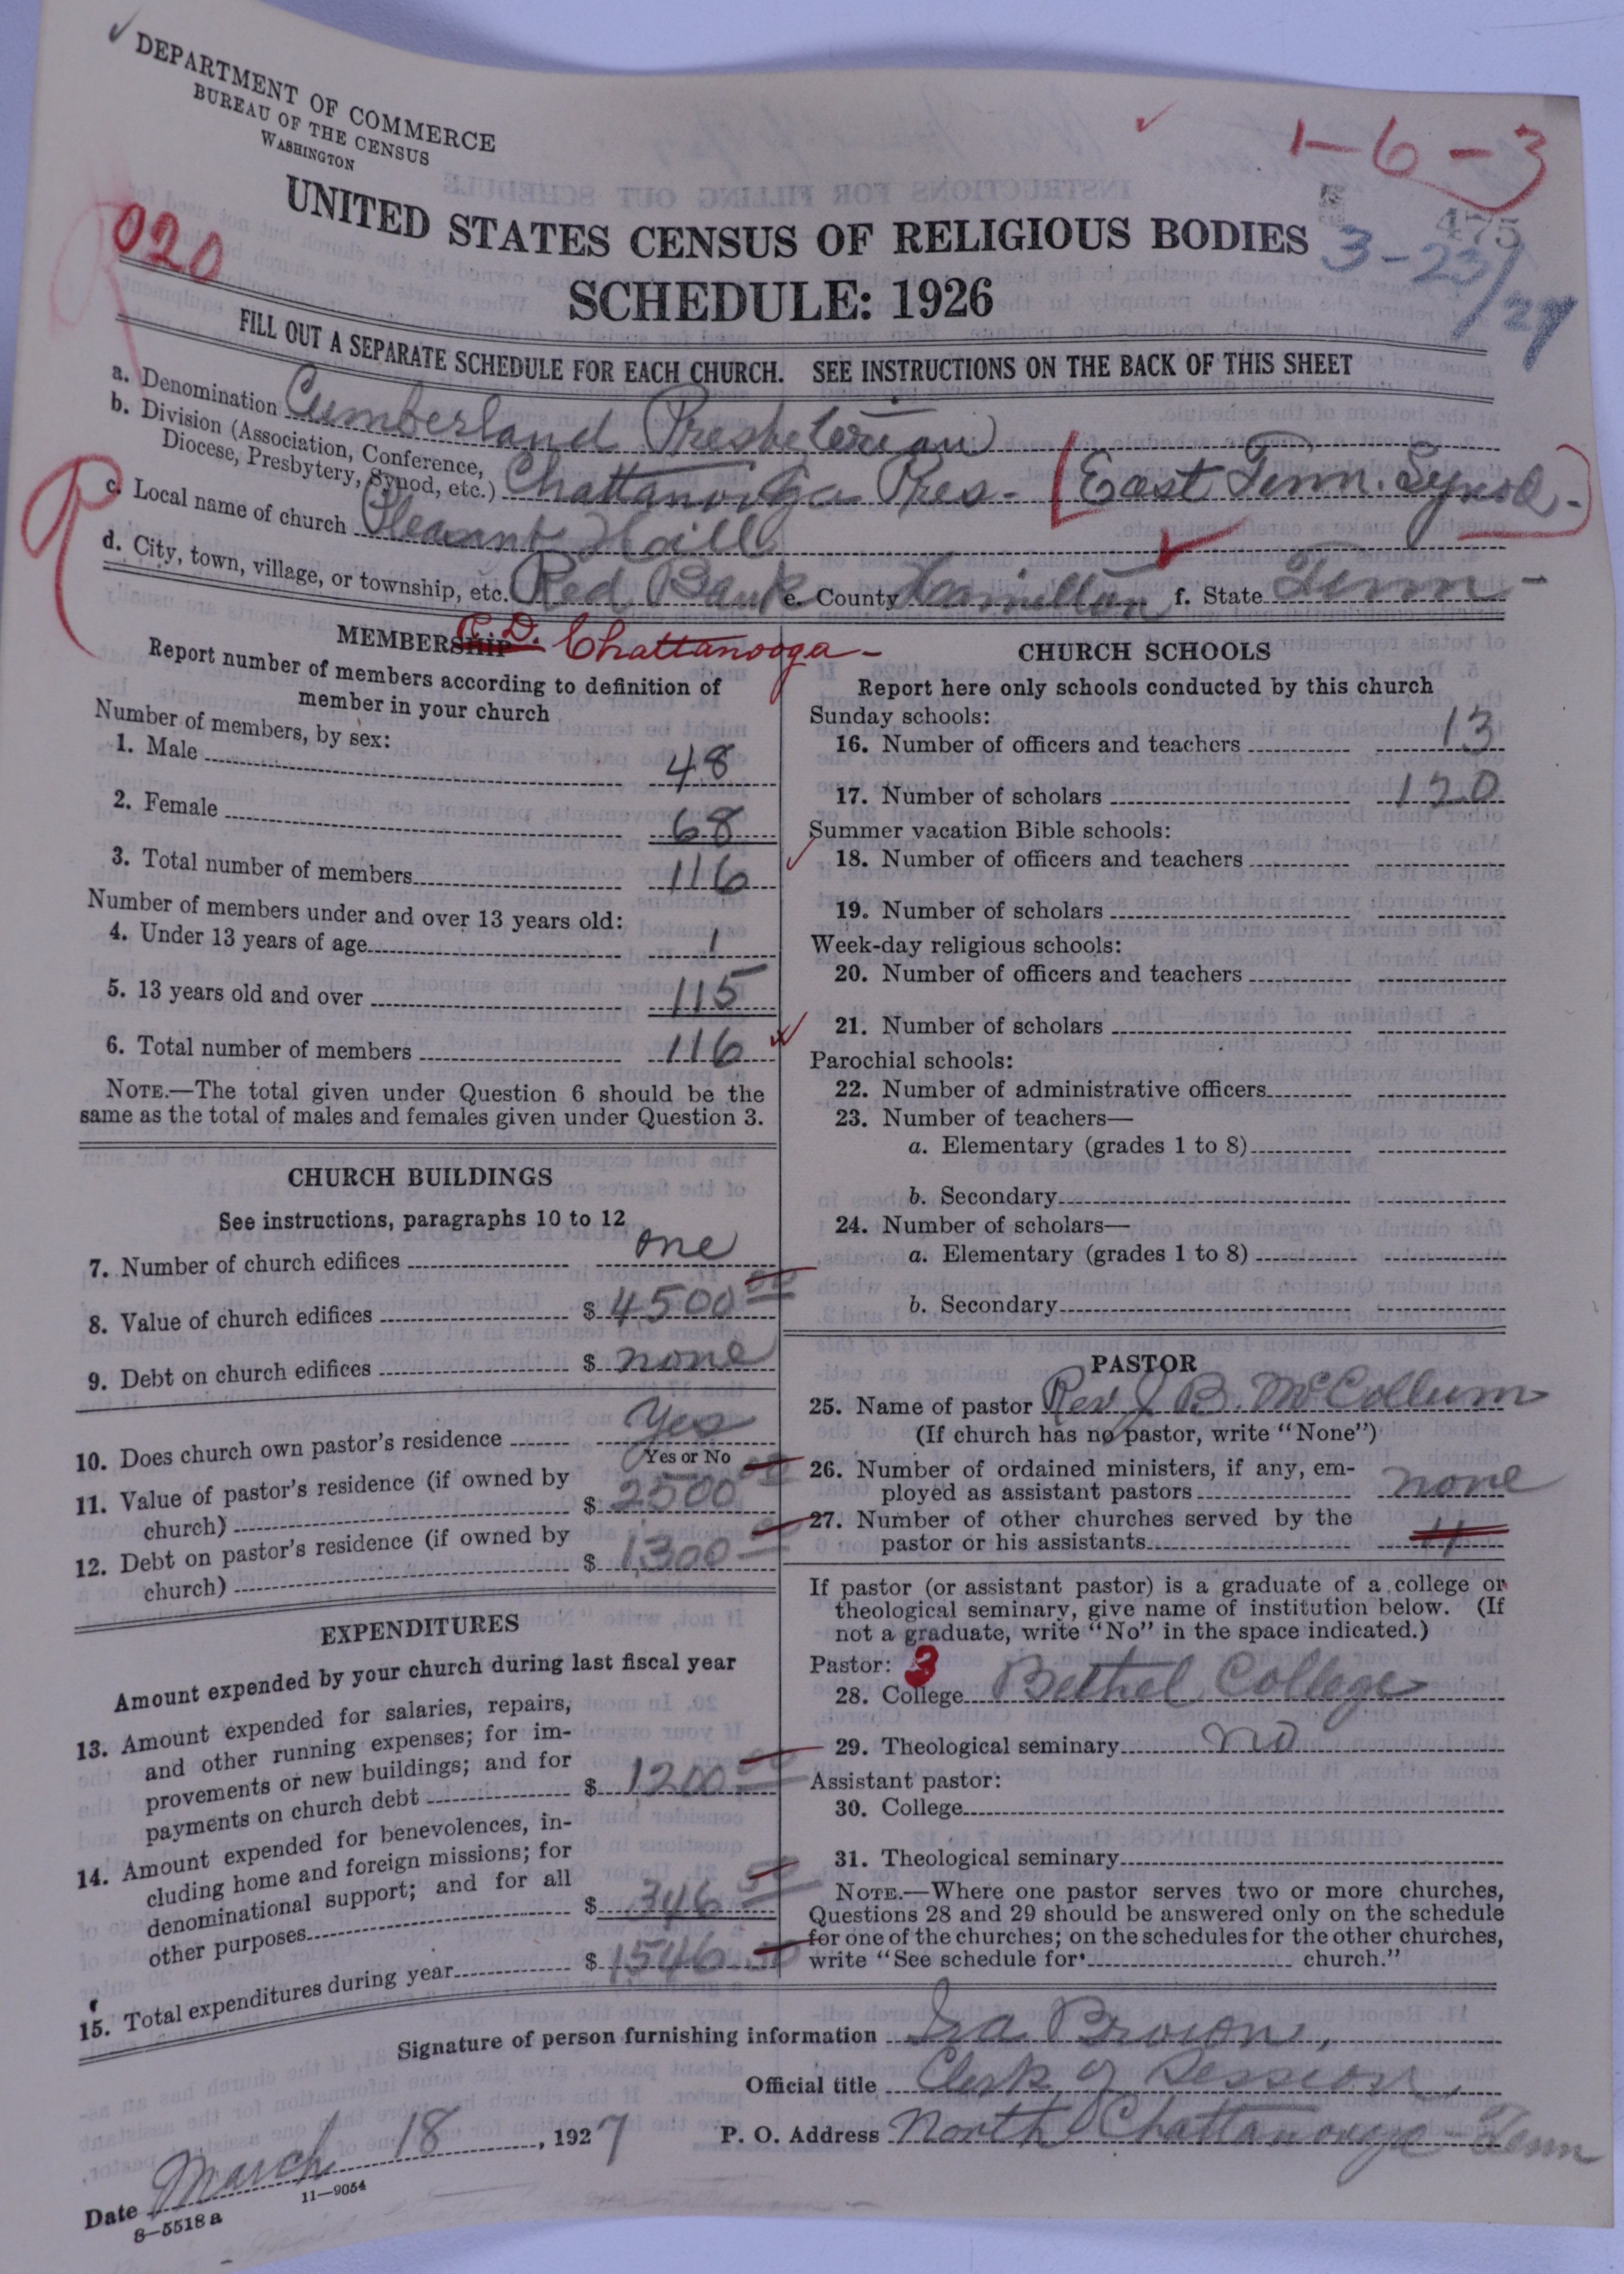 DEPARTMENT OF COMMERCE
BUREAU OF THE CENSUS
WASHINGTON
1-6-3
UNITED STATES CENSUS OF RELIGIOUS BODIES
475
020
3-23/27
SCHEDULE: 1926
FILL OUT A SEPARATE SCHEDULE FOR EACH CHURCH. SEE INSTRUCTIONS ON THE BACK OF THIS SHEET
a. Denomination Cumberland Presbyterian
b. Division (Association, Conference, Diocese, Presbytery, Synod, etc.) Chattanooga Pres- [East Tenn. Synod-]
c. Local name of church Pleasant Hill
d. City, town, village, or township, etc. Red Bank e. County Hamilton f. State Tenn-
MEMBERSHIP
R.D. Chattanooga-
Report number of members according to definition of
member in your church
Number of members, by sex:
1. Male 48
2. Female 68
3. Total number of members 116
Number of members under and over 13 years old:
4. Under 13 years of age 1
5. 13 years old and over 115
6. Total number of members 116
NOTE.—The total given under Question 6 should be the
same as the total of males and females given under Question 3.
CHURCH BUILDINGS
See instructions, paragraphs 10 to 12
7. Number of church edifices one
8. Value of church edifices $ 4500 00
9. Debt on church edifices $ none
10. Does church own pastor's residence Yes
Yes or No
11. Value of pastor's residence (if owned by
church) $ 2500 00
12. Debt on pastor's residence (if owned by
church) $ 1,300 00
EXPENDITURES
Amount expended by your church during last fiscal year
13. Amount expended for salaries, repairs,
and other running expenses; for im-
provements or new buildings; and for
payments on church debt $ 1200 00
14. Amount expended for benevolences, in-
cluding home and foreign missions; for
denominational support; and for all
other purposes $ 346 50
15. Total expenditures during year $ 1546 50
CHURCH SCHOOLS
Report here only schools conducted by this church
Sunday schools:
16. Number of officers and teachers 13
17. Number of scholars 120
Summer vacation Bible schools:
18. Number of officers and teachers
19. Number of scholars
Week-day religious schools:
20. Number of officers and teachers
21. Number of scholars
Parochial schools:
22. Number of administrative officers
23. Number of teachers—
a. Elementary (grades 1 to 8)
b. Secondary
24. Number of scholars—
a. Elementary (grades 1 to 8)
b. Secondary
PASTOR
25. Name of pastor Rev J. B. McCollum
(If church has no pastor, write "None")
26. Number of ordained ministers, if any, em-
ployed as assistant pastors none
27. Number of other churches served by the
pastor or his assistants
If pastor (or assistant pastor) is a graduate of a college or
theological seminary, give name of institution below. (If
not a graduate, write "No" in the space indicated.)
Pastor: 3
28. College Bethel College
29. Theological seminary no
Assistant pastor:
30. College
31. Theological seminary
NOTE.—Where one pastor serves two or more churches,
Questions 28 and 29 should be answered only on the schedule
for one of the churches; on the schedules for the other churches,
write "See schedule for church."
Signature of person furnishing information Ira Brown,
Official title Clerk of Session
Date March 18, 1927
P. O. Address North Chattanooga-Tenn
11—9054
8—5518 a